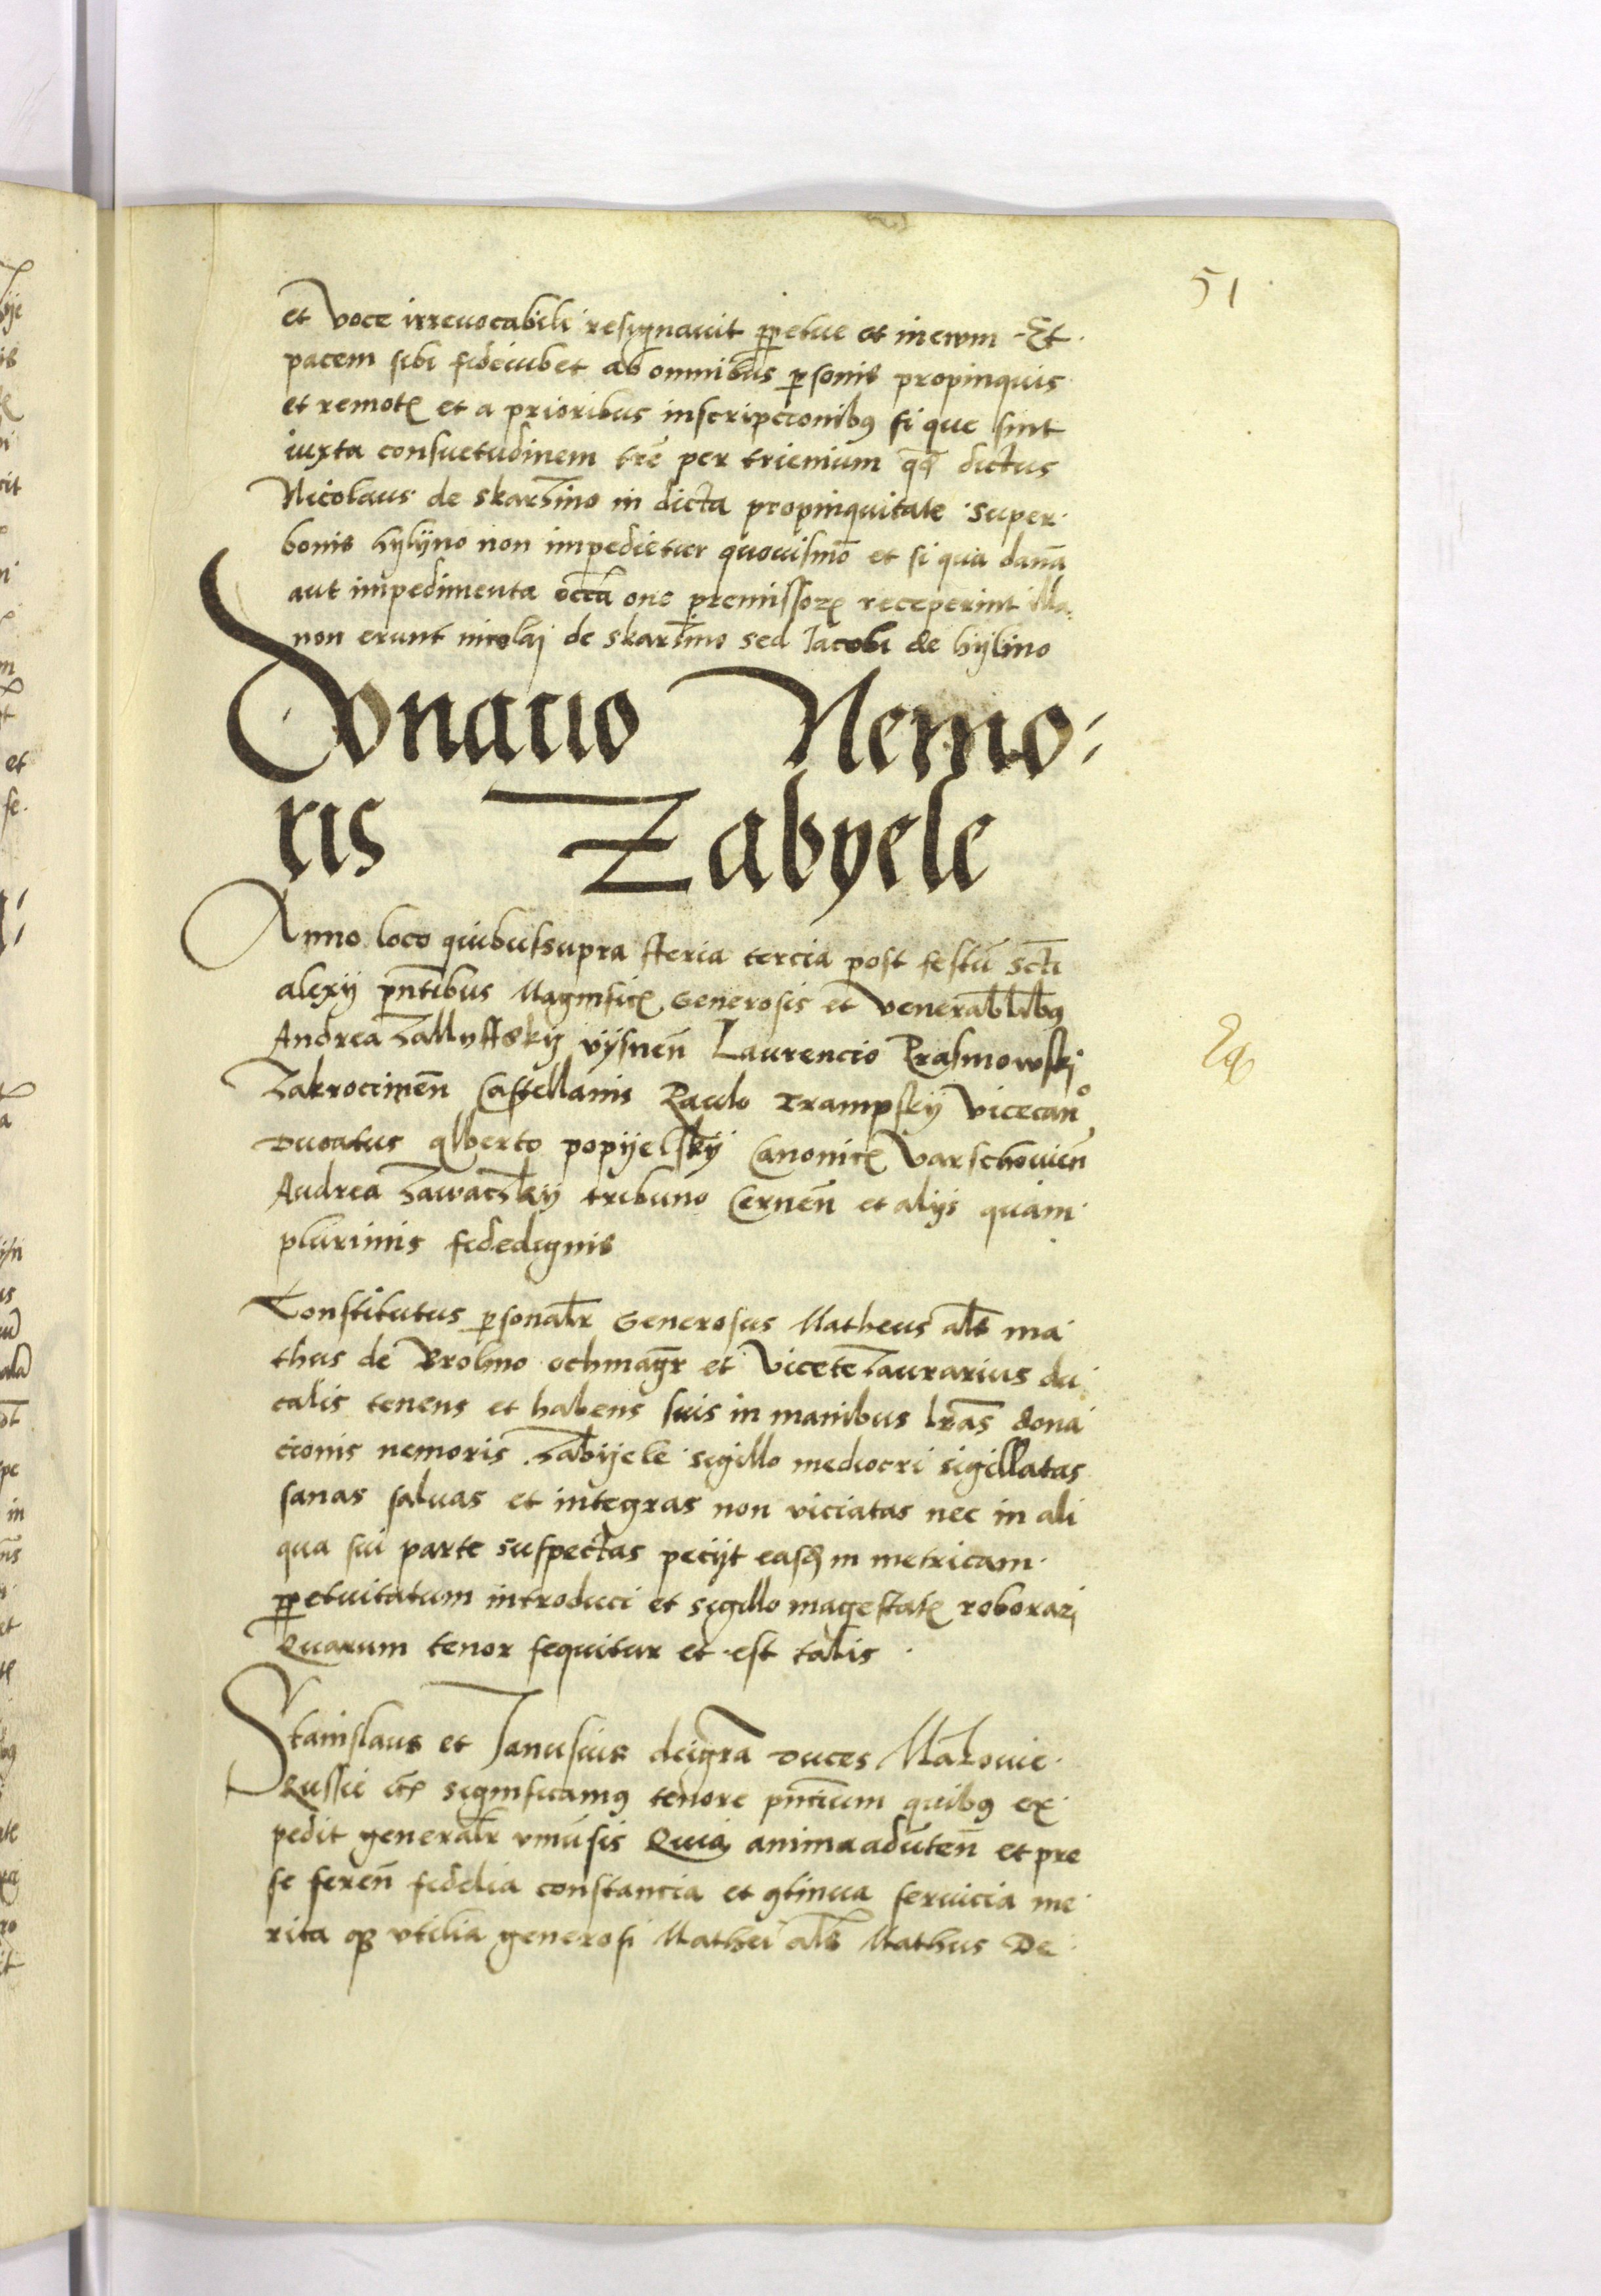 51
et Voce irreuocabili resignauit ꝑpetue et in ewm Et
pacem sibi fideiubet ab omnibus ꝑsonis propinquis
et remotꝭ et a prioribus inscripcionibꝯ si que sint
iuxta consuetudinem tr̃e per trienium qꝙ dictus
Nicolaus de skarzino in dicta propinquitate super
bonis hylyno non impedietur quouismõ et si qua danã
aut impedimenta occã one premissorꝫ receperint illa
non erunt nicolaj de skarzino sed Jacobi de hijlino
Donacio Nemo:
ris Zabyele
Anno loco quibussupra fferia tercia post festũ Scti
alexij pñtibus Magnificꝭ Generosis et Venerabłibꝯ
Andrea Zallyffskij vijsneñ Laurencio Prasmowskj
Zakrocimeñ Castellanis Paulo Trampskij Vicecanᵒ
Ducatus alberto popijelskij Canonicꝭ Varschouieñ
Andrea Zawaczkij tribuno Cerneñ et alijs quam
plurimis fidedignis
Constitutus ꝑsonałr Generosus Matheus als ma
thus de Brolino ochmagr̃ et ViceteZaurarius du
calis tenens et habens suis in manibus lr̃as dona
cionis nemoris Zabijele sigillo mediocri sigillatas
sanas saluas et integras non viciatas nec in ali
qua sui parte suspectas pecijt easꝗ in metricam
ꝑpetuitatum introduci et sigillo magestatꝭ roborarj
Quarum tenor sequitur et est talis
Stanislaus et Janusius deigrã Duces Mazouie
Russie etcꝭ significamꝯ tenore pñcium quibꝯ ex
pedit generałr vniũsis Quia animaaduteñ et pre
se fereñ fidelia constancia et ꝯtinua seruicia me
rita qꝫ vtilia generosi Mathei als Mathus De